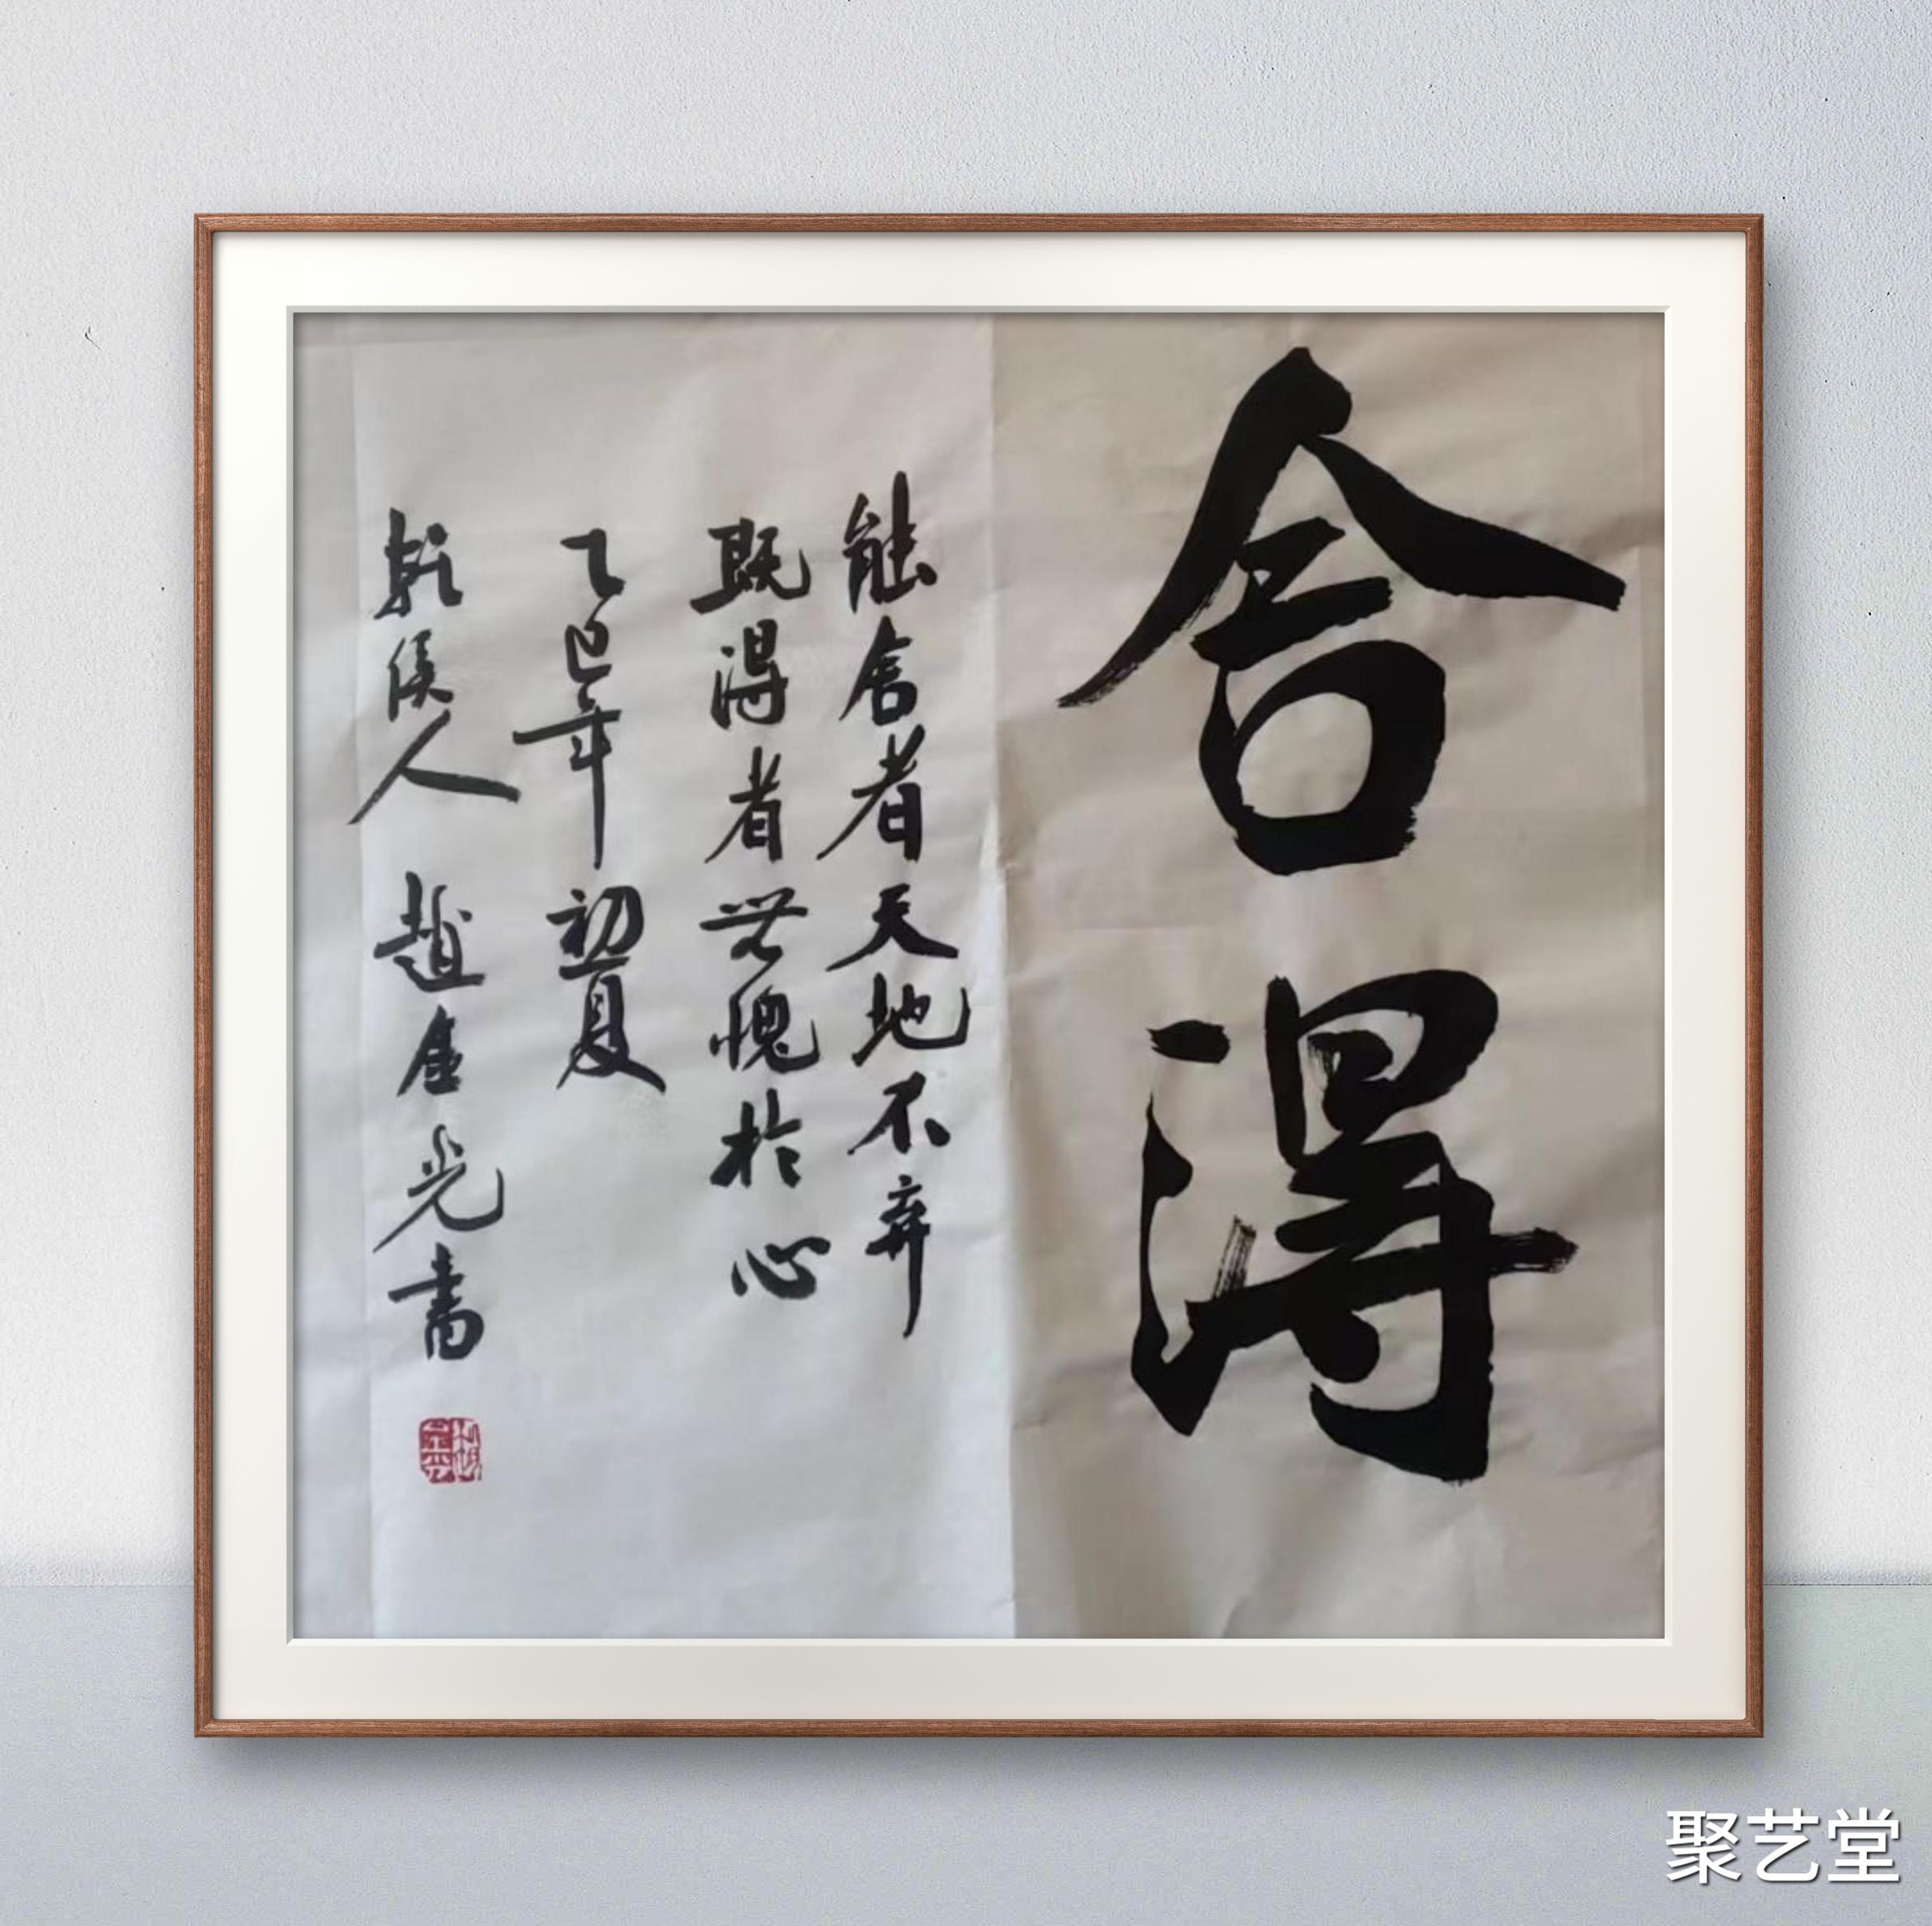 舍得
能舍者天地不弃
既得者無愧於心
乙巳年初夏
乾溪人 趙金光書
聚艺堂